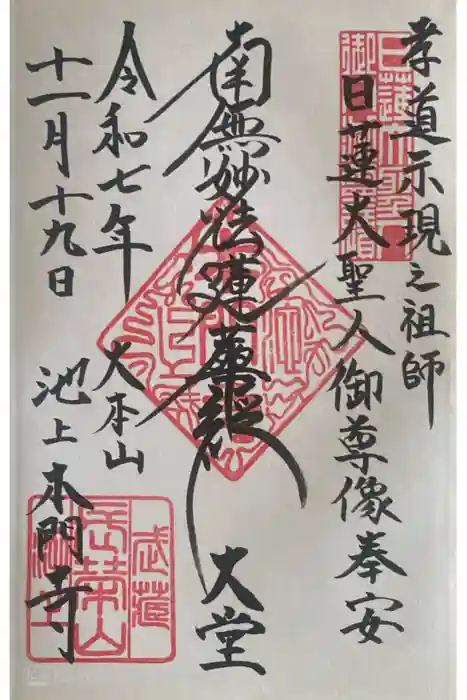 孝道示現之祖師
日蓮大聖人御尊像奉安
南無妙法蓮華経
大堂
令和七年
十一月十九日
大本山
池上本門寺
武蔵
長栄山
池上